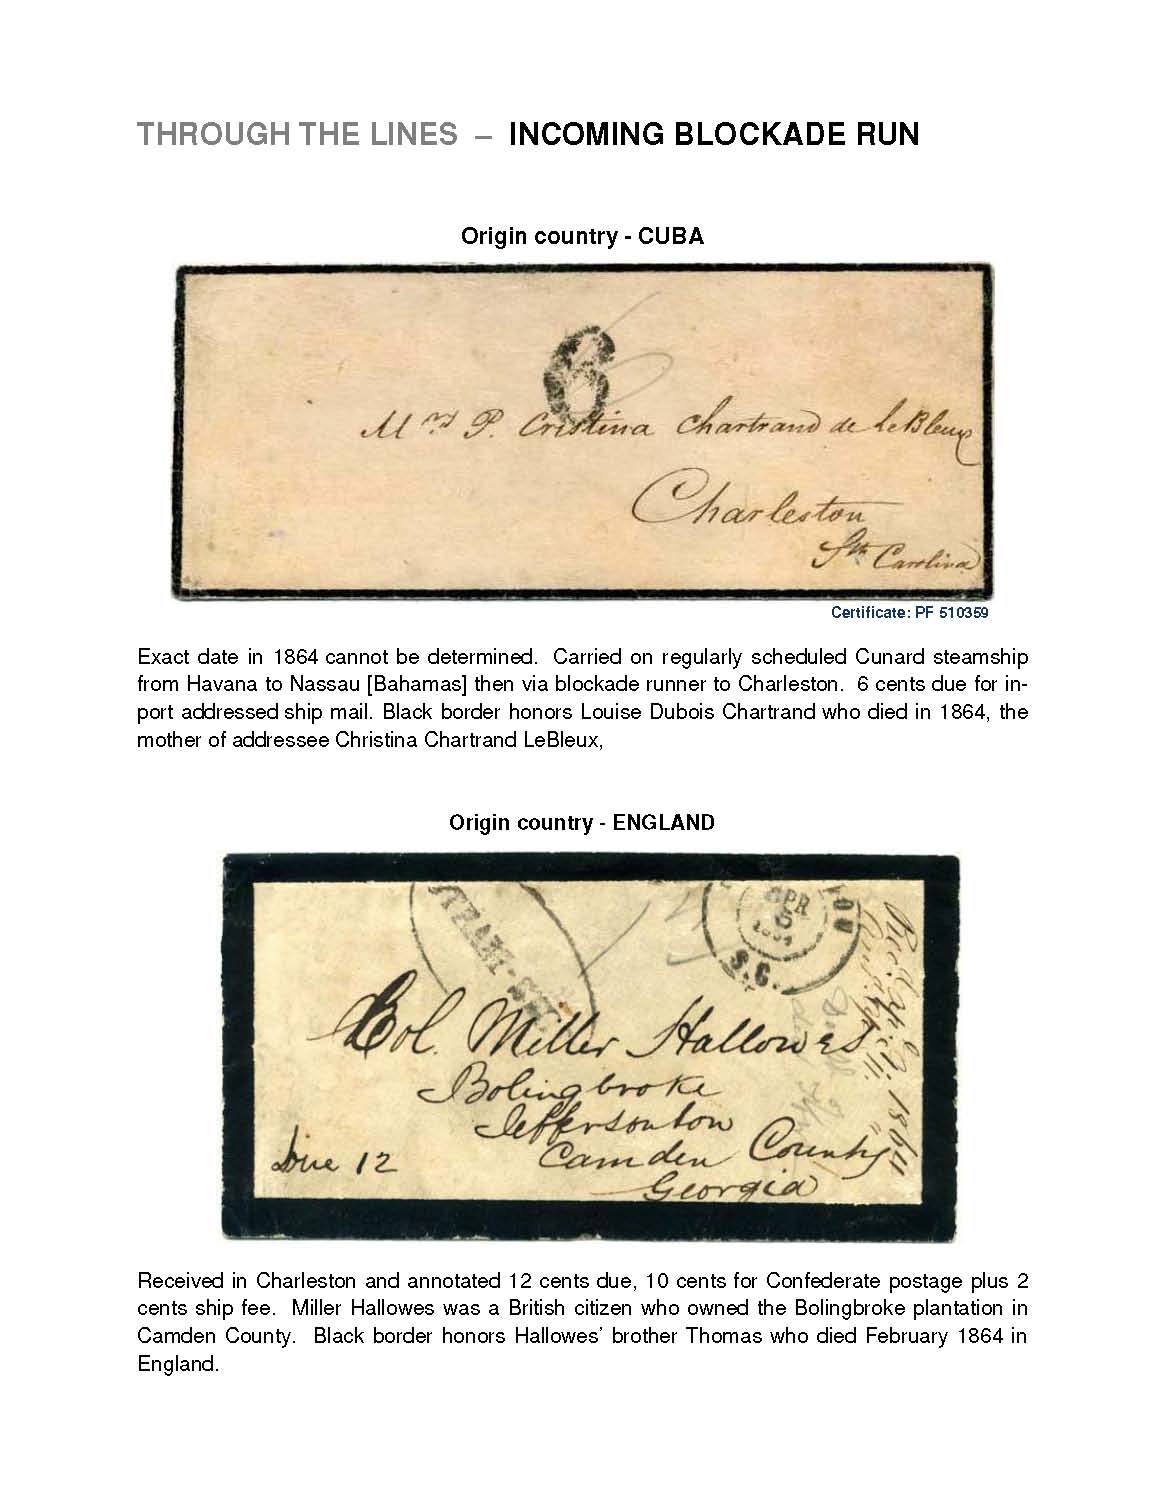 THROUGH THE LINES – INCOMING BLOCKADE RUN
Origin country - CUBA
6
Mrs P. Cristina Chartrand de LeBleux
Charleston
Sth Carolina
Certificate: PF 510359
Exact date in 1864 cannot be determined. Carried on regularly scheduled Cunard steamship
from Havana to Nassau [Bahamas] then via blockade runner to Charleston. 6 cents due for in-
port addressed ship mail. Black border honors Louise Dubois Chartrand who died in 1864, the
mother of addressee Christina Chartrand LeBleux,
Origin country - ENGLAND
STEAM-SH
12
APR
5
S.C.
Col. Miller Hallowes
Bolingbroke
Jeffersonton
Camden County
Georgia
Due 12
1864
Received in Charleston and annotated 12 cents due, 10 cents for Confederate postage plus 2
cents ship fee. Miller Hallowes was a British citizen who owned the Bolingbroke plantation in
Camden County. Black border honors Hallowes' brother Thomas who died February 1864 in
England.